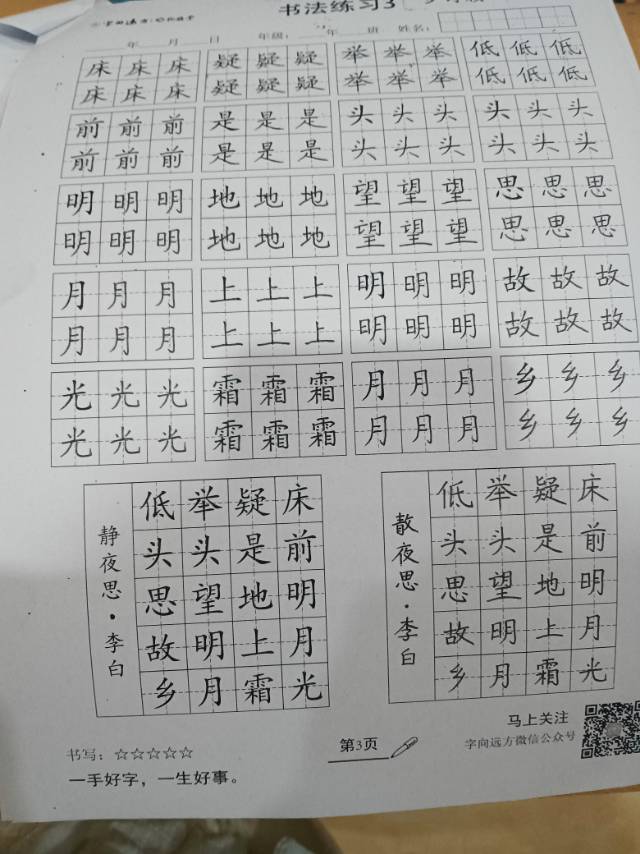 书法练习3
年 月 日 年级: 年 班 姓名:
床 床 床 疑 疑 疑 举 举 举 低 低 低
床 床 床 疑 疑 疑 举 举 举 低 低 低
前 前 前 是 是 是 头 头 头 头 头 头
前 前 前 是 是 是 头 头 头 头 头 头
明 明 明 地 地 地 望 望 望 思 思 思
明 明 明 地 地 地 望 望 望 思 思 思
月 月 月 上 上 上 明 明 明 故 故 故
月 月 月 上 上 上 明 明 明 故 故 故
光 光 光 霜 霜 霜 月 月 月 乡 乡 乡
光 光 光 霜 霜 霜 月 月 月 乡 乡 乡
床前明月光
疑是地上霜
举头望明月
低头思故乡
静夜思·李白
床前明月光
疑是地上霜
举头望明月
低头思故乡
散夜思·李白
书写:☆☆☆☆☆
一手好字，一生好事。
第3页
马上关注
字向远方微信公众号